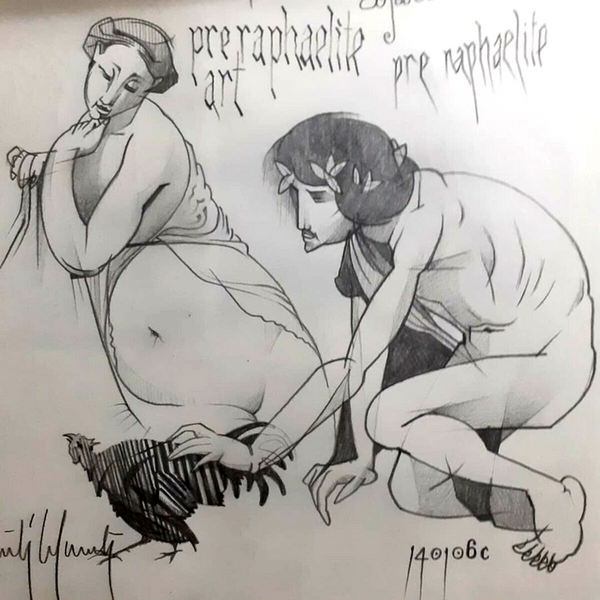 pre raphaelite
art
pre raphaelite
140106c